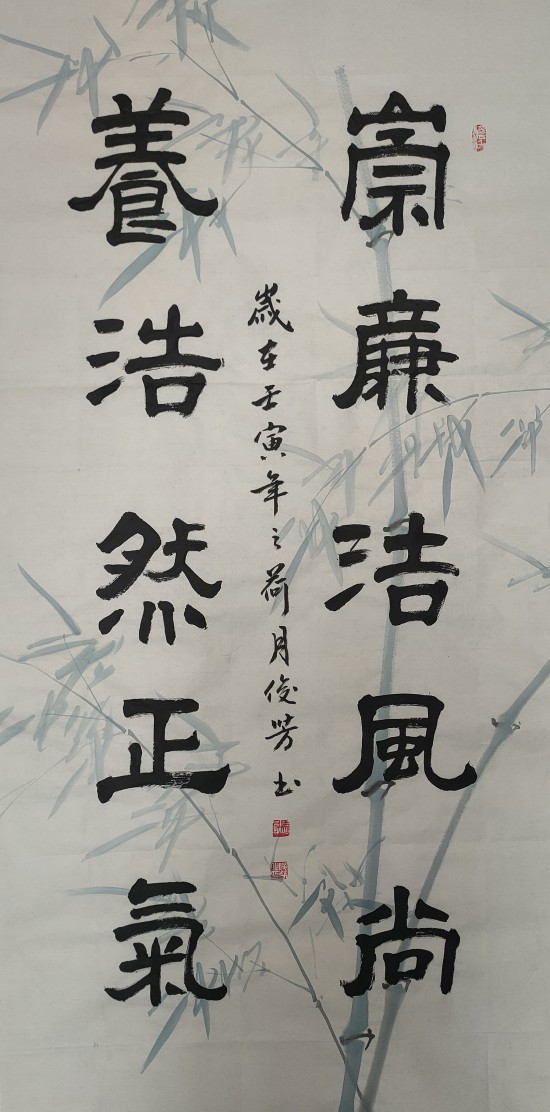 崇廉洁風尚
養浩然正氣
歲在壬寅年之荷月俊芳书